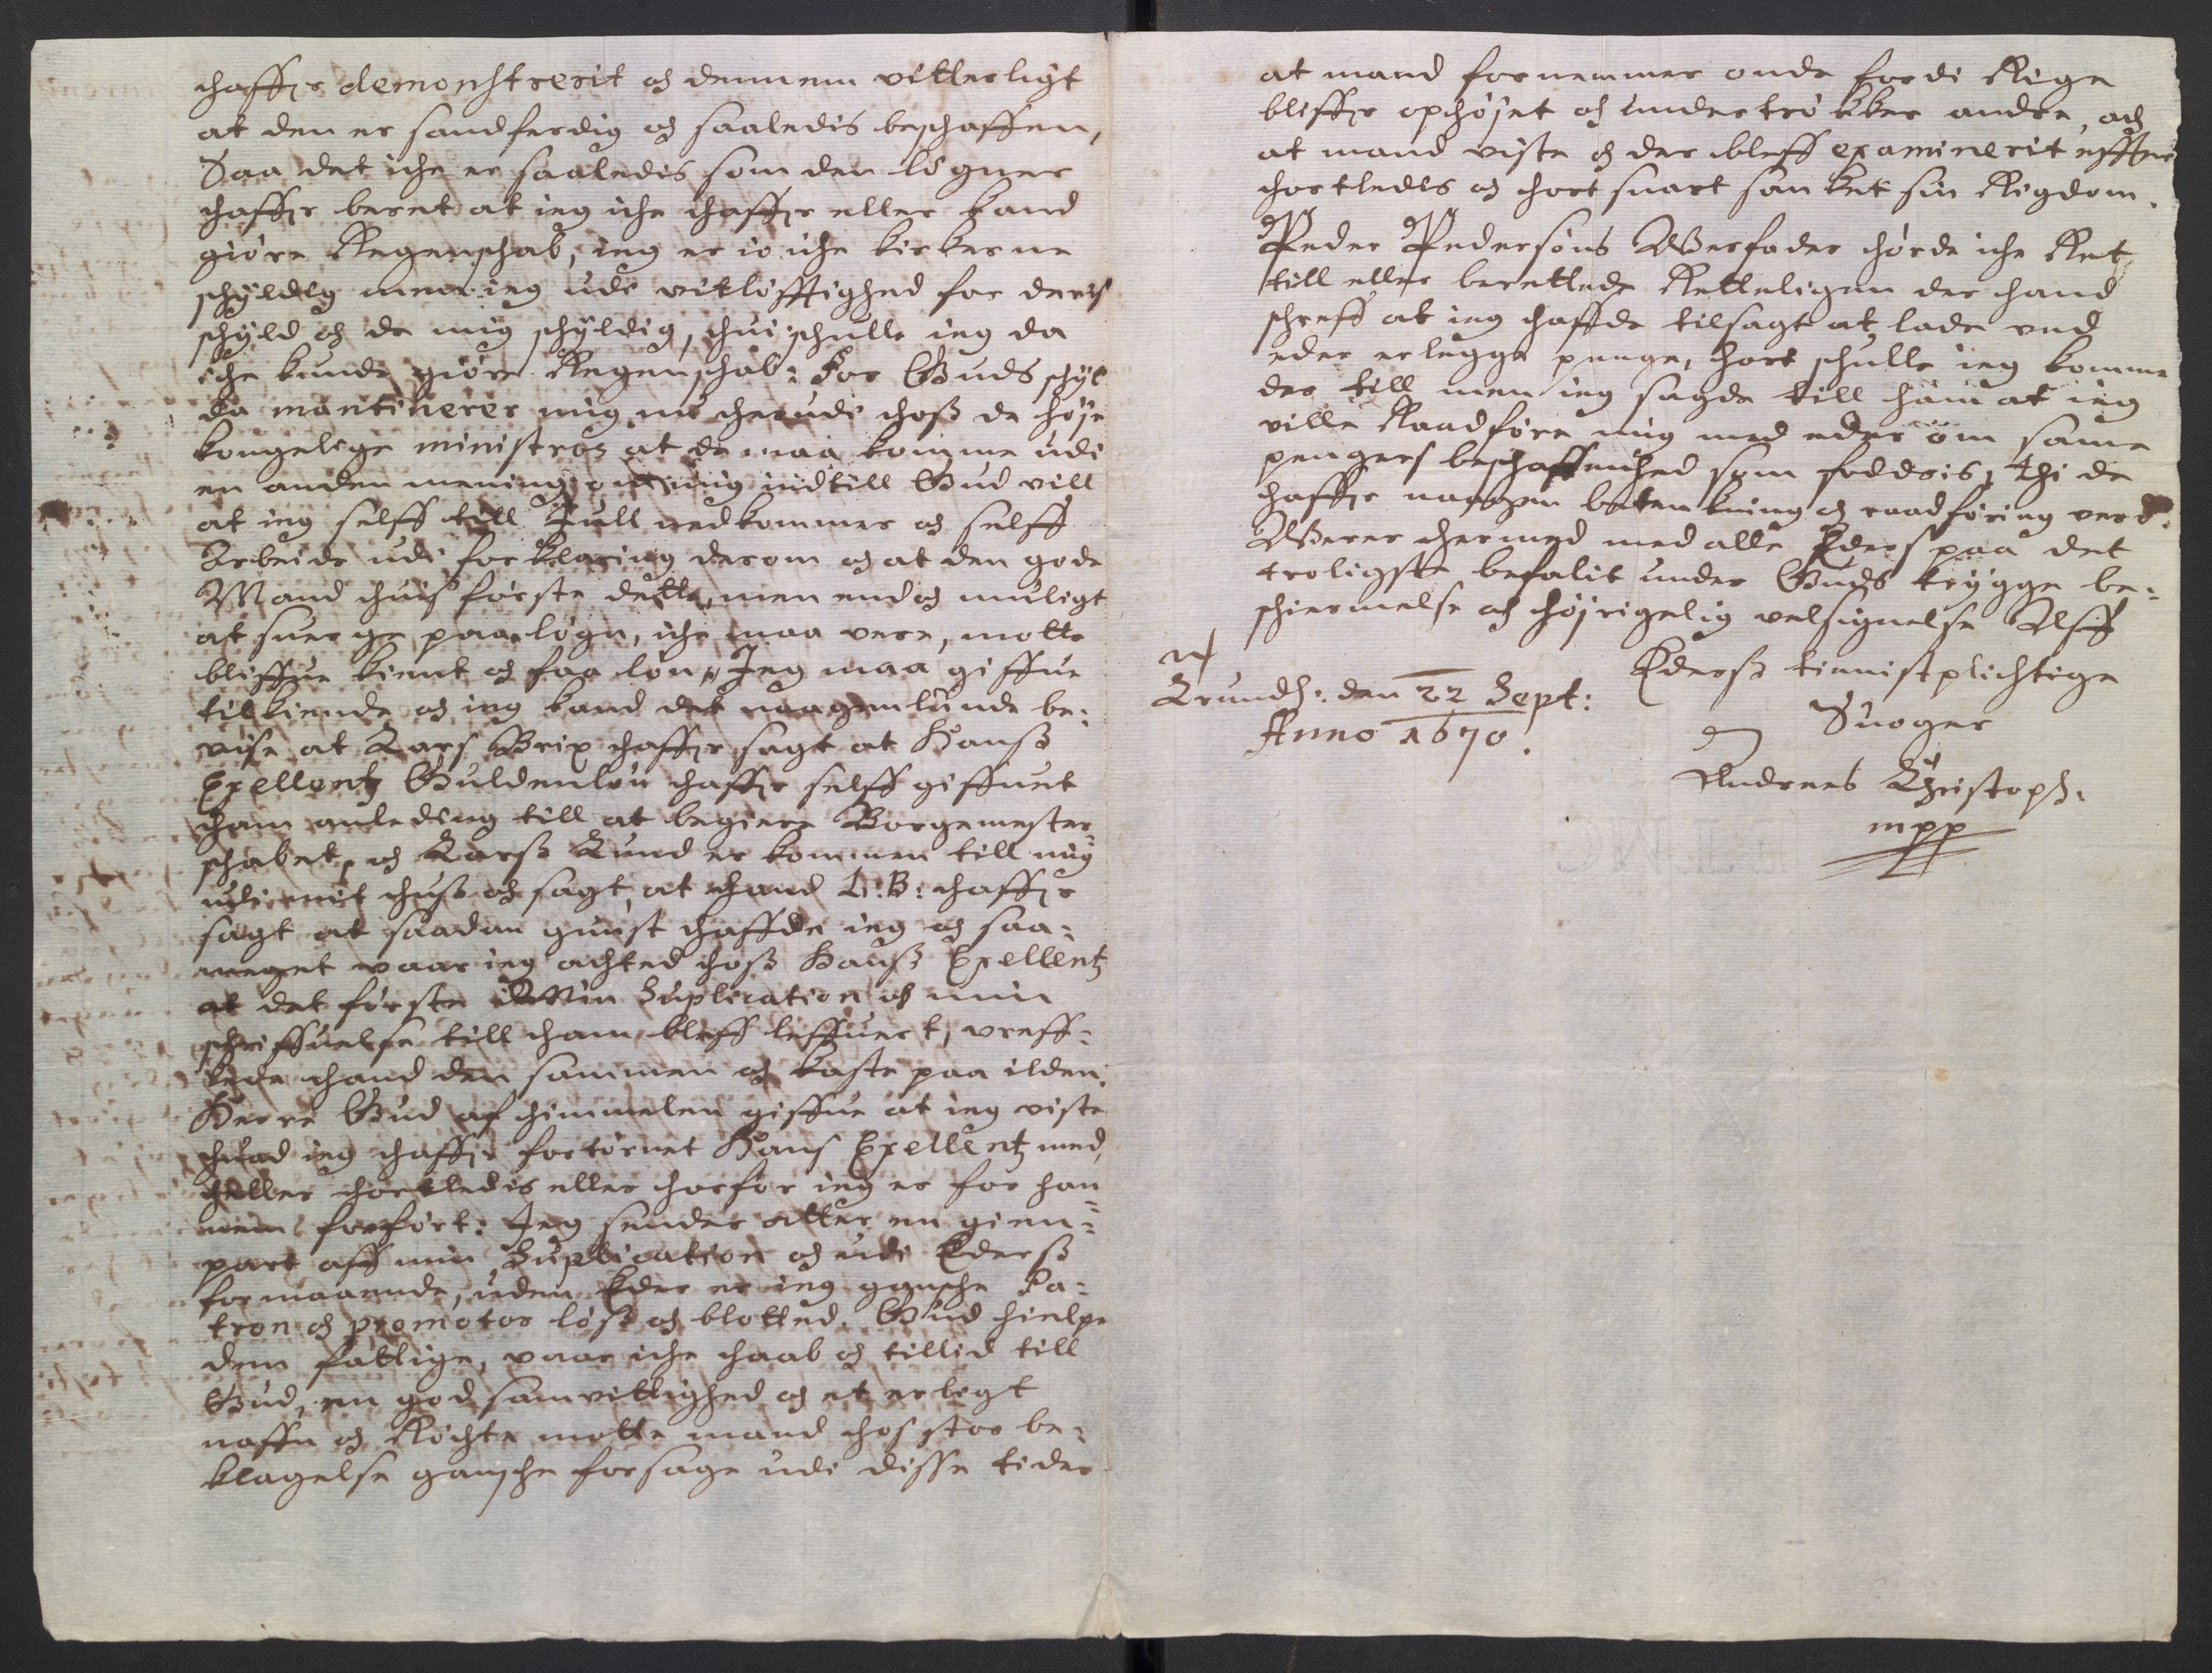 chaffr demonstrerit och dennem vitterligt
at den er sandferdig och saaledis beschaffen,
Saa det iche er saaledis som den lögner
chaffr beret at ieg iche chaffr eller kand
giöre Regenschab, ieg er io iche kirkerne
schyldig men ieg udi vitlöfftighed for deris
schyld och de mig schyldig, chui schulle ieg da
iche kunde giöre Regenschab: For Guds schyl
da mantinerer mig nu cherudi choss de höje
kongelige ministros at de maa komme udi
en anden mening om mig indtill Gud vill
at ieg selff till Jull nedkommer och selff
Arbeide udi forklaring derom och at den gode
Mand chuis förste dette, men end och muligt
at suerge paa lögn, iche maa vere, motte
bliffue kient och faa lön, Jeg maa giffue
tilkiende och ieg kand det naagenlunde be:
vise at Lars Brix chaffr sagt at Hanss
Exellentz Guldenlöu chaffr selff giffuet
cham anleding till at begiere Borgemester
schabet, och Larss Lund er kommen till mig
udi mit chuss och sagt, at chand L: B: chaffr
sagt at saadan gunst chaffde ieg och saa:
meget vaar ieg achted choss Hanss Exellentz
at det förste Min Suplication och min
schriffuelse till cham bleff leffuert, vreff:
lede chand den sammen och kaste paa ilden.
Herre Gud af chimmelen giffue at ieg viste
chuad ieg chaffr fortörnet Hans Exellentz med,
cheller chortledis eller chorfor ieg er for han
nem forfört: Jeg sender atter en gien:
part aff min Suplication och udi Ederss
formaaende, uden Eder er ieg gansche Pa:
tron och promotor löss och blotted. Gud hielpe
den fattige, vaar iche chaab och tillid till
Gud, en god samvittighed och et erligt
naffn och Röchte motte mand chos stor be:
klagelse gansche forsage udi disse tider
at mand fornemmer onde fordi Rige
bliffr ophöjet och undertrökker andre, och
at mand viste och der bleff examinerit effter
chortledis och chort snart sanket sin Rigdom.
Peder Pedersöns Verfader chörde iche Ret
till eller berettede Retteligen der chand
schreff at ieg chaffde tilsagt at lade ved
eder erlegge penge, chort schulle ieg komme
der till men ieg sagde till ham at ieg
ville Raadföre mig med eder om same
pengers beschaffenhed som foddris, thi de
chaffr naagen betenkning och raadföring verd.
Verer chermed med alle Eders paa det
troligste befalit under Guds trygge be:
schiermelse och chöjrigelig velsignelse Aff
Ederss tienistplichtige
Suoger
Andreas Christoph:
mpp
Trundh: den 22 Sept:
Anno 1670.